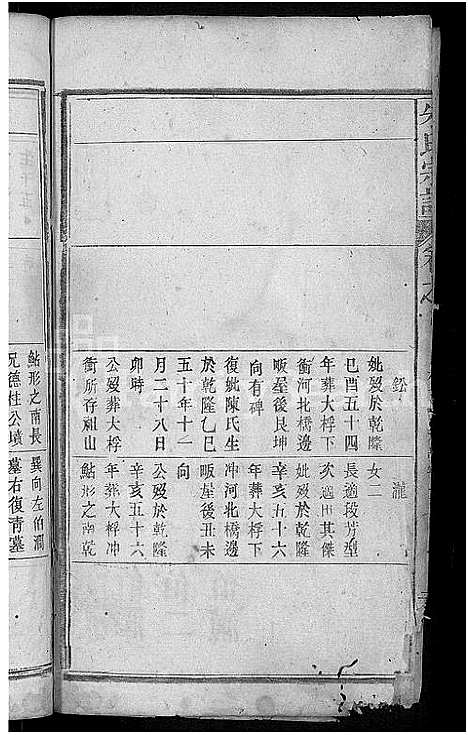 氏宗譜
卷之
妣歿於乾隆
己酉五十四
年葬大桴下
衝河北橋邊
畈屋後艮坤
向有碑
復娶陳氏生
於乾隆乙巳
五十年十一
月二十八日
卯時
公歿葬大桴
衝所存祖山
瀧
女二
長適段芳型
次適田其傑
妣歿於乾隆
辛亥五十六
年葬大桴下
冲河北橋邊
畈屋後丑未
向
公歿於乾隆
辛亥五十六
年葬大桴冲
鮎形之南乾
鮎形之南長
兄德柱公墳
巽向左伯潤
墓右復靑墓